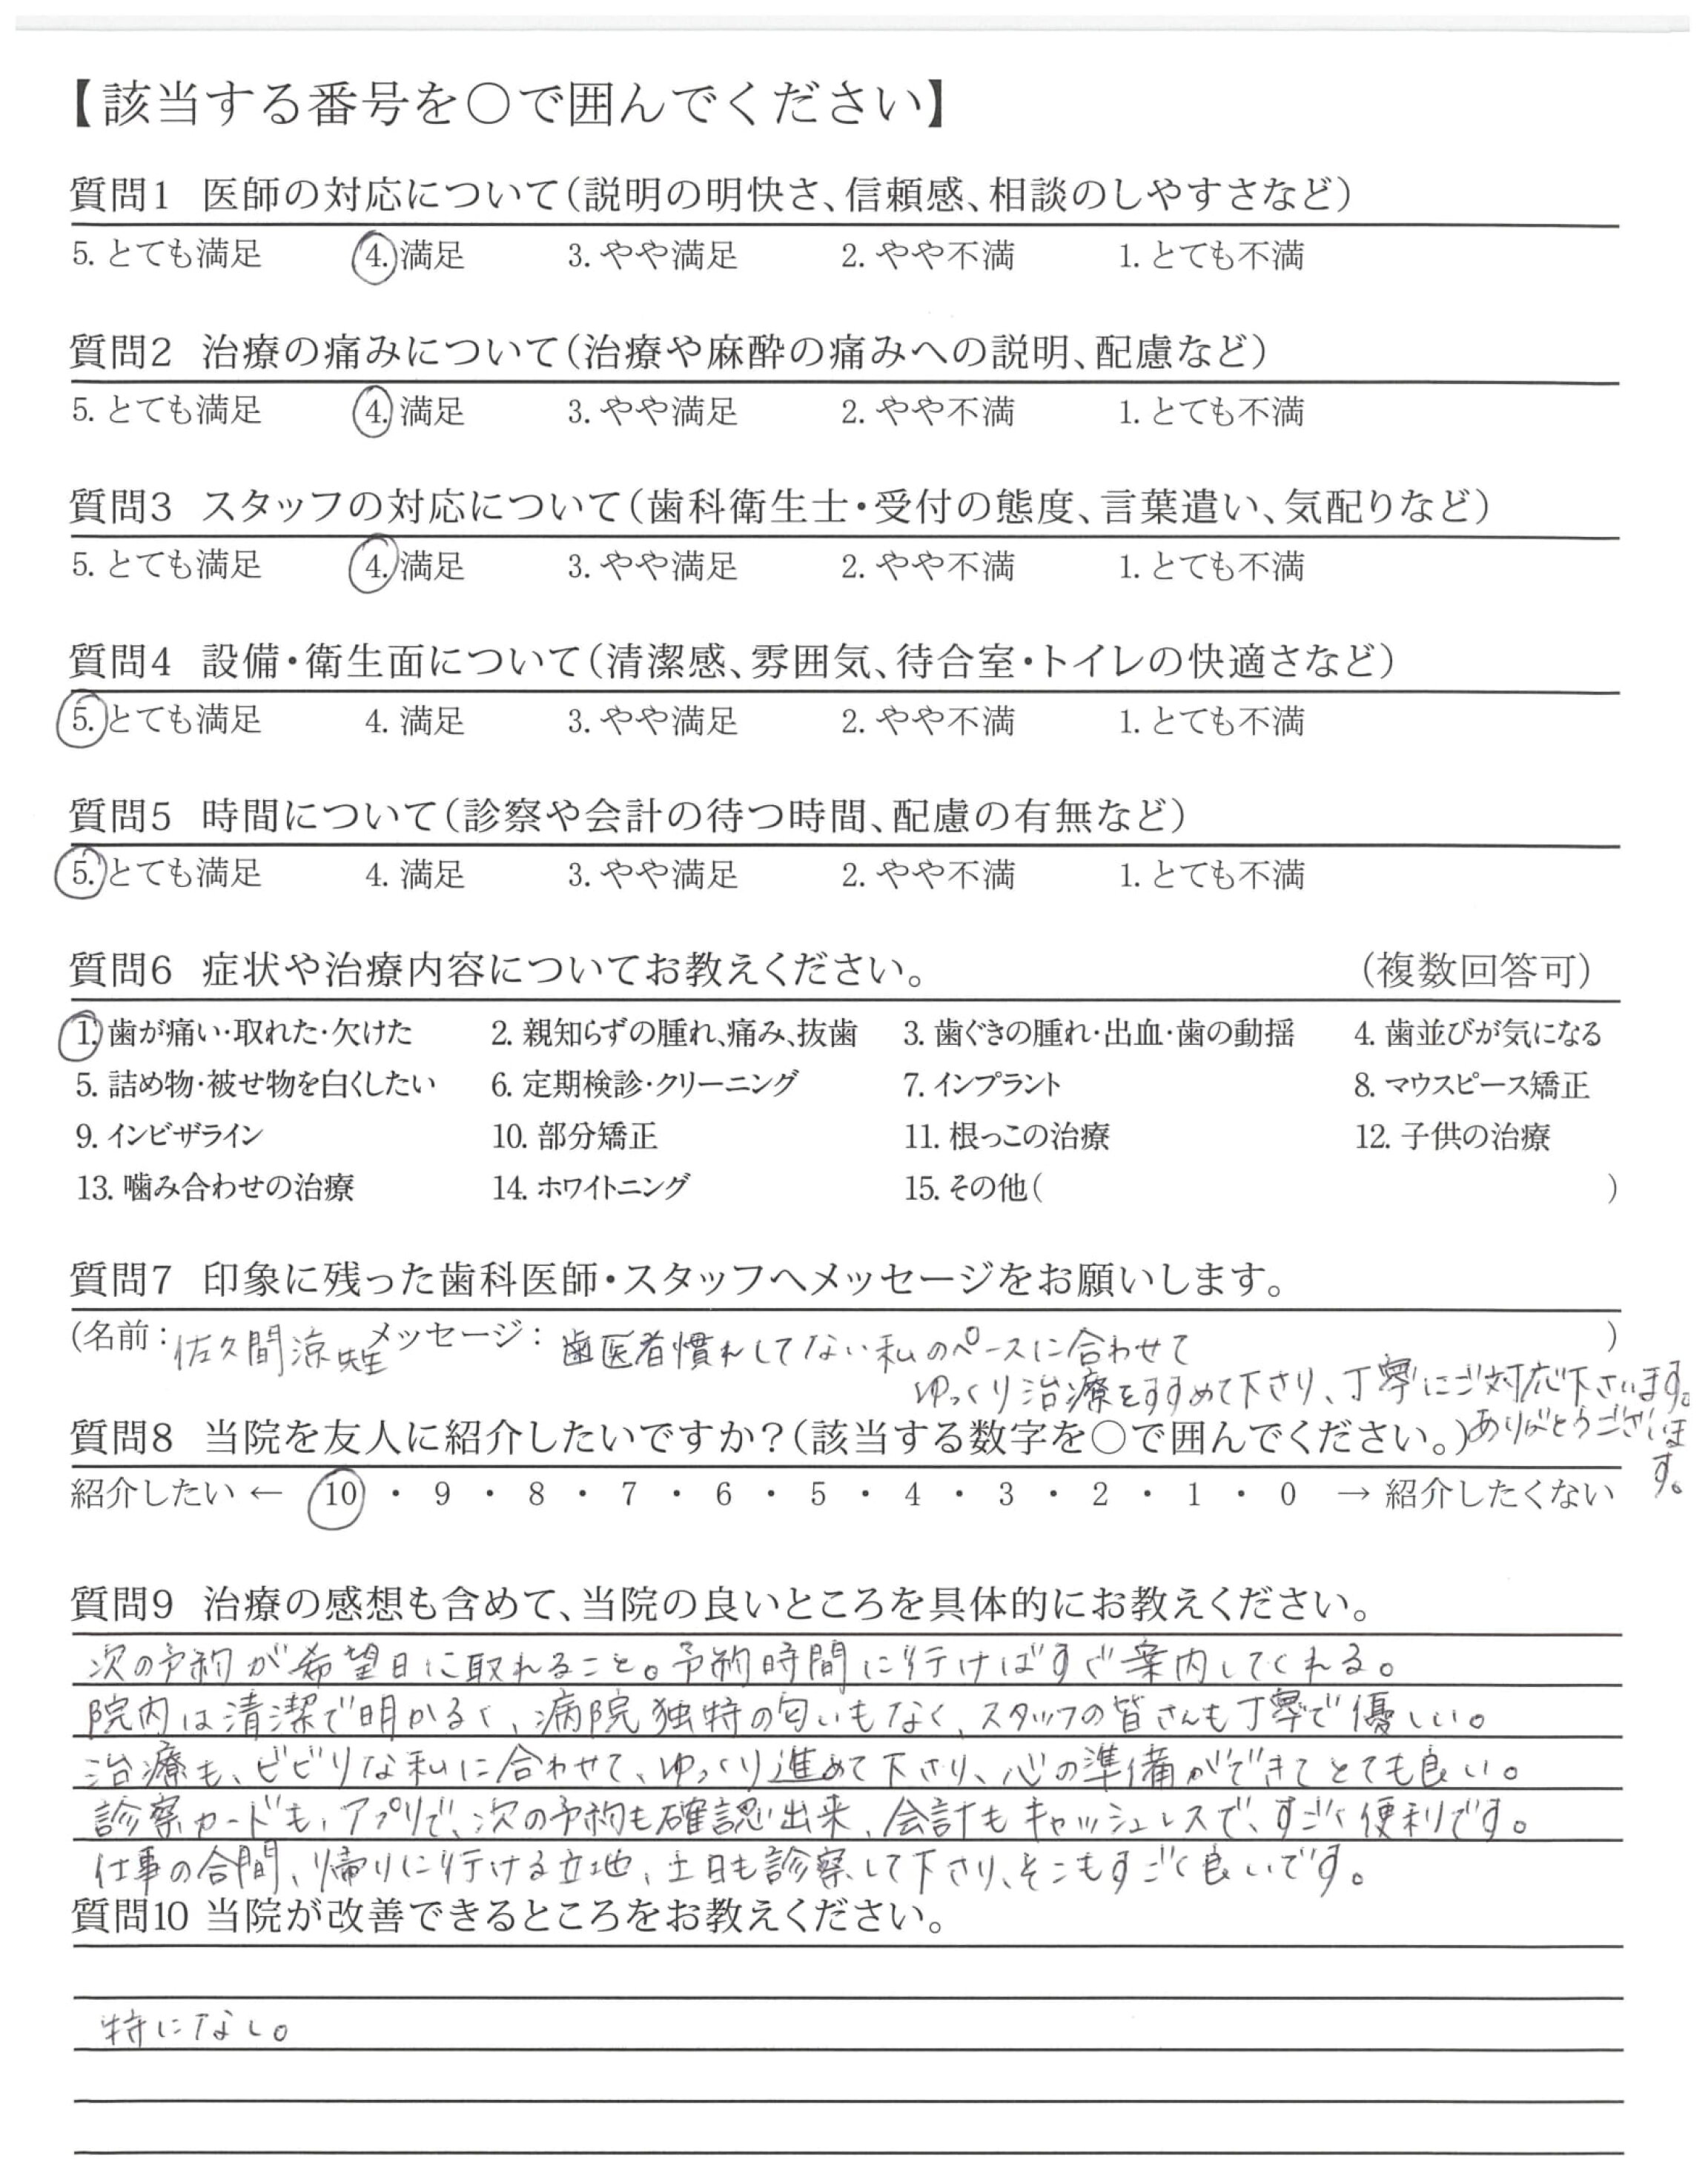 【該当する番号を○で囲んでください】
質問1 医師の対応について(説明の明快さ、信頼感、相談のしやすさなど)
5. とても満足 4. 満足 3. やや満足 2. やや不満 1. とても不満
質問2 治療の痛みについて(治療や麻酔の痛みへの説明、配慮など)
5. とても満足 4. 満足 3. やや満足 2. やや不満 1. とても不満
質問3 スタッフの対応について(歯科衛生士・受付の態度、言葉遣い、気配りなど)
5. とても満足 4. 満足 3. やや満足 2. やや不満 1. とても不満
質問4 設備・衛生面について(清潔感、雰囲気、待合室・トイレの快適さなど)
5. とても満足 4. 満足 3. やや満足 2. やや不満 1. とても不満
質問5 時間について(診察や会計の待つ時間、配慮の有無など)
5. とても満足 4. 満足 3. やや満足 2. やや不満 1. とても不満
質問6 症状や治療内容についてお教えください。 (複数回答可)
1. 歯が痛い・取れた・欠けた 2. 親知らずの腫れ、痛み、抜歯 3. 歯ぐきの腫れ・出血・歯の動揺 4. 歯並びが気になる
5. 詰め物・被せ物を白くしたい 6. 定期検診・クリーニング 7. インプラント 8. マウスピース矯正
9. インビザライン 10. 部分矯正 11. 根っこの治療 12. 子供の治療
13. 噛み合わせの治療 14. ホワイトニング 15. その他( )
質問7 印象に残った歯科医師・スタッフへメッセージをお願いします。
(名前:佐久間涼先生 メッセージ: 歯医者慣れしてない私のペースに合わせて )
ゆっくり治療をすすめて下さり、丁寧にご対応下さいます。
ありがとうございま
す。
質問8 当院を友人に紹介したいですか?(該当する数字を○で囲んでください。)
紹介したい ← 10 ・ 9 ・ 8 ・ 7 ・ 6 ・ 5 ・ 4 ・ 3 ・ 2 ・ 1 ・ 0 → 紹介したくない
質問9 治療の感想も含めて、当院の良いところを具体的にお教えください。
次の予約が希望日に取れること。予約時間に行けばすぐ案内してくれる。
院内は清潔で明かるく、病院独特の匂いもなく、スタッフの皆さんも丁寧で優しい。
治療も、ビビリな私に合わせて、ゆっくり進めて下さり、心の準備ができてとても良い。
診察カードも、アプリで、次の予約も確認出来、会計もキャッシュレスで、すごく便利です。
仕事の合間、帰りに行ける立地、土日も診察して下さり、そこもすごく良いです。
質問10 当院が改善できるところをお教えください。
特になし。